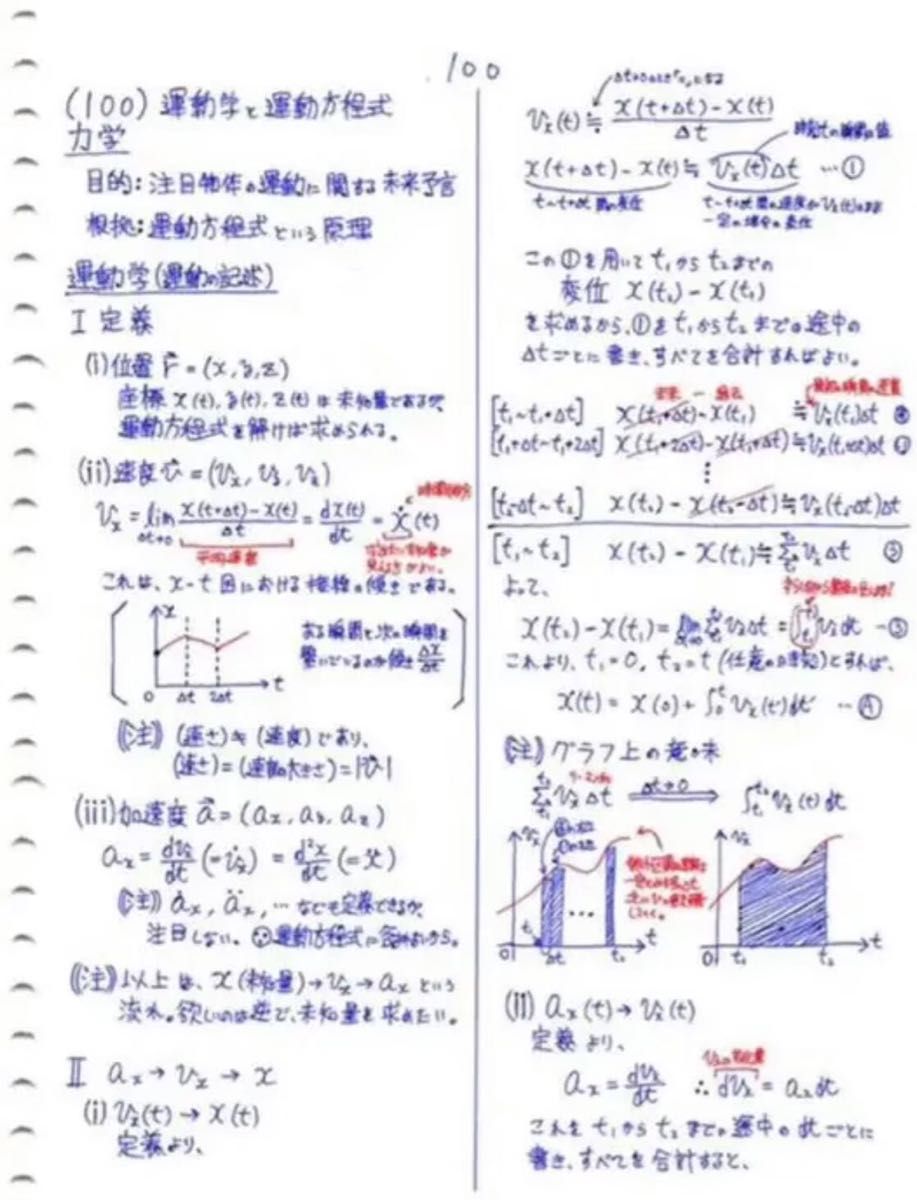 100
(100) 運動学と運動方程式
力学
目的:注目物体の運動に関する未来予言
根拠:運動方程式という原理
運動学(運動の記述)
I 定義
(i)位置 r⃗ = (x, y, z)
座標 x(t), y(t), z(t) は未知量であるが、
運動方程式を解けば求められる。
(ii)速度 v⃗ = (vx, vy, vz)
vx = lim Δt→0 x(t+Δt)-x(t)/Δt = dx(t)/dt = ẋ(t)
平均速度
これは、x-t図における接線の傾きである。
x
0 Δt 2Δt t
ある瞬間と次の瞬間を
繋いでいるのが傾き Δx/Δt
(注) (速さ) ≠ (速度) であり、
(速さ) = (速度の大きさ) = |v⃗|
(iii)加速度 a⃗ = (ax, ay, az)
ax = dvx/dt (= v̇x) = d²x/dt² (= ẍ)
(注) ȧx, äx, … なども定義できるが、
注目しない。∵運動方程式に含めないから。
(注) 以上は、x(未知量)→vx→axという
流れ。欲しいのは逆で、未知量を求めたい。
II ax → vx → x
(i) vx(t) → x(t)
定義より、
vx(t) ≒ x(t+Δt)-x(t)/Δt
x(t+Δt)-x(t) ≒ vx(t)Δt …①
t~t+Δt 間の変位
この①を用いてt₁からt₂までの
変位 x(t₂)-x(t₁)
を求めるから、①をt₁からt₂までの途中の
Δtごとに書き、すべてを合計すればよい。
未来 - 過去
[t₁~t₁+Δt] x(t₁+Δt)-x(t₁) ≒ vx(t₁)Δt
[t₁+Δt~t₁+2Δt] x(t₁+2Δt)-x(t₁+Δt) ≒ vx(t₁+Δt)Δt
⋮
[t₂-Δt~t₂] x(t₂)-x(t₂-Δt) ≒ vx(t₂-Δt)Δt
[t₁~t₂] x(t₂)-x(t₁) ≒ Σ vxΔt ②
よって、
x(t₂)-x(t₁) = lim Δt→0 Σ vxΔt = ∫ vx dt …③
これより、t₁=0, t₂=t (任意の時刻)とすれば、
x(t) = x(0) + ∫₀ᵗ vx(t)dt …④
(注) グラフ上の意味
Σ vxΔt Δt→0 ∫ vx(t)dt
vx
0 t₁ Δt t₂ t
vx
0 t₁ t₂ t
(ii) ax(t) → vx(t)
定義より、
ax = dvx/dt ∴ dvx = ax dt
これをt₁からt₂までの途中のdtごとに
書き、すべてを合計すると、